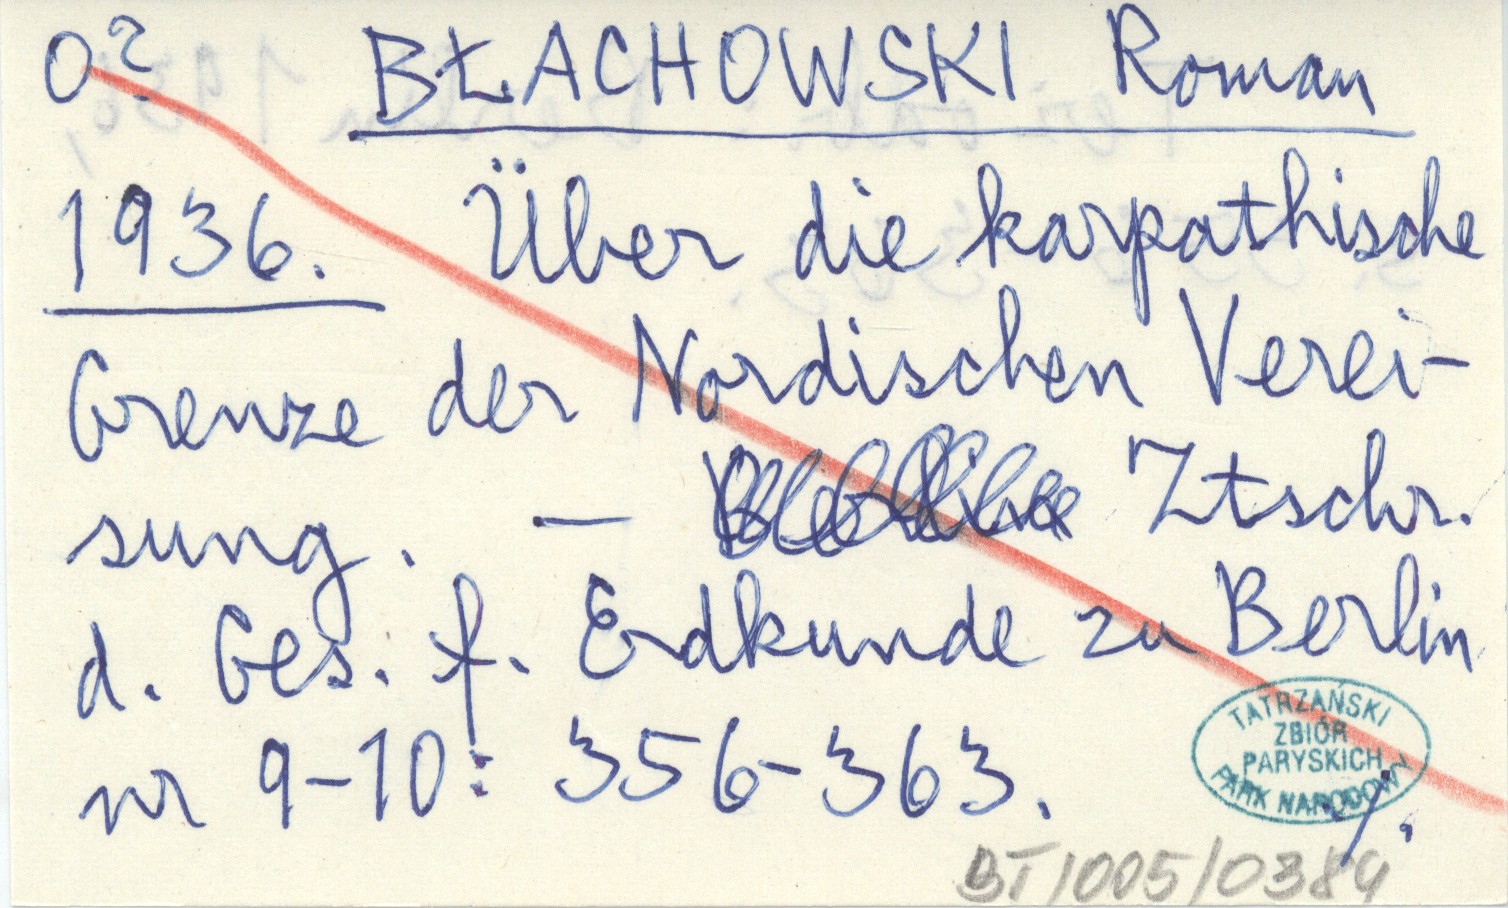 O? BŁACHOWSKI Roman
1936. Über die karpathische
Grenze der Nordischen Verei-
sung. — Ztschr.
d. Ges. f. Erdkunde zu Berlin
nr 9-10: 356-363.
TATRZAŃSKI
ZBIÓR
PARYSKICH
PARK NARODOWY
./.
BT/005/0384